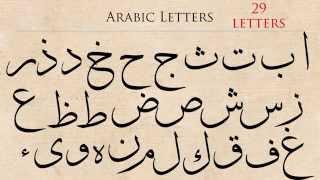 Arabic Letters
29
letters
ا ب ت ث ج ح خ د ذ ر
ز س ش ص ض ط ظ ع
غ ف ق ك ل م ن ه و ي ء